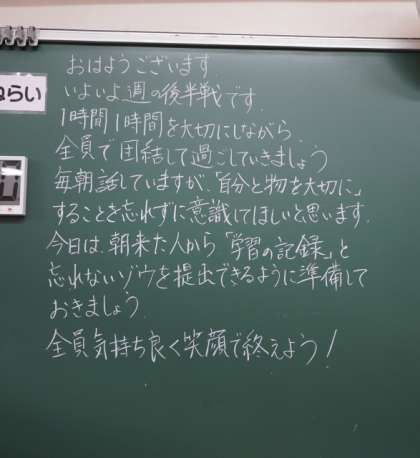 おはようございます.
いよいよ週の後半戦です.
1時間1時間を大切にしながら、
全員で団結して過ごしていきましょう
毎朝話していますが、「自分と物を大切に」
することを忘れずに意識してほしいと思います.
今日は、朝来た人から「学習の記録」と
忘れないゾウを提出できるように準備して
おきましょう.
全員気持ち良く笑顔で終えよう！
ねらい